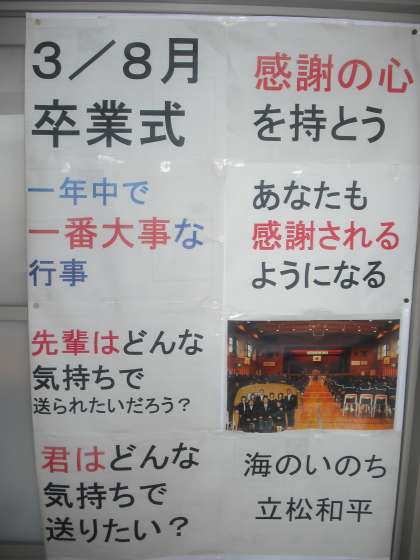 3/8月
卒業式
一年中で
一番大事な
行事
先輩はどんな
気持ちで
送られたいだろう？
君はどんな
気持ちで
送りたい？
感謝の心
を持とう
あなたも
感謝される
ようになる
海のいのち
立松和平